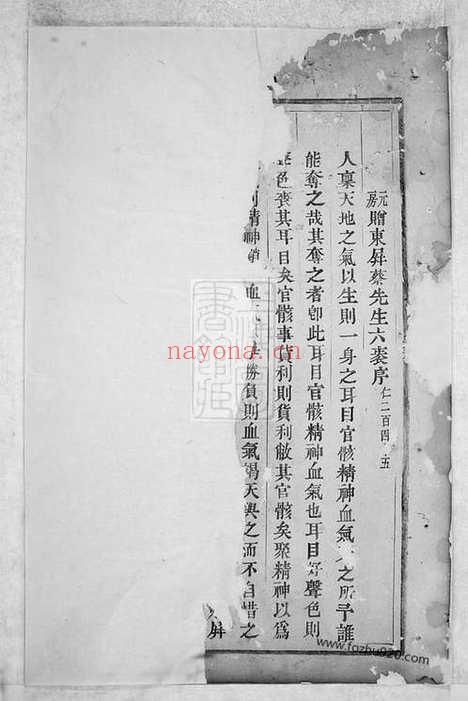 元房贈東屏蔡先生六袠序仁二百四五
人稟天地之氣以生則一身之耳目官骸精神血氣之所予誰
能奪之哉其奪之者卽此耳目官骸精神血氣也耳目好聲色則
聲色喪其耳目矣官骸事貨利則貨利敝其官骸矣聚精神以為
則精神血勝負則血氣竭天與之而不自惜之
屏
nayona.cn
www.fozhu920.com